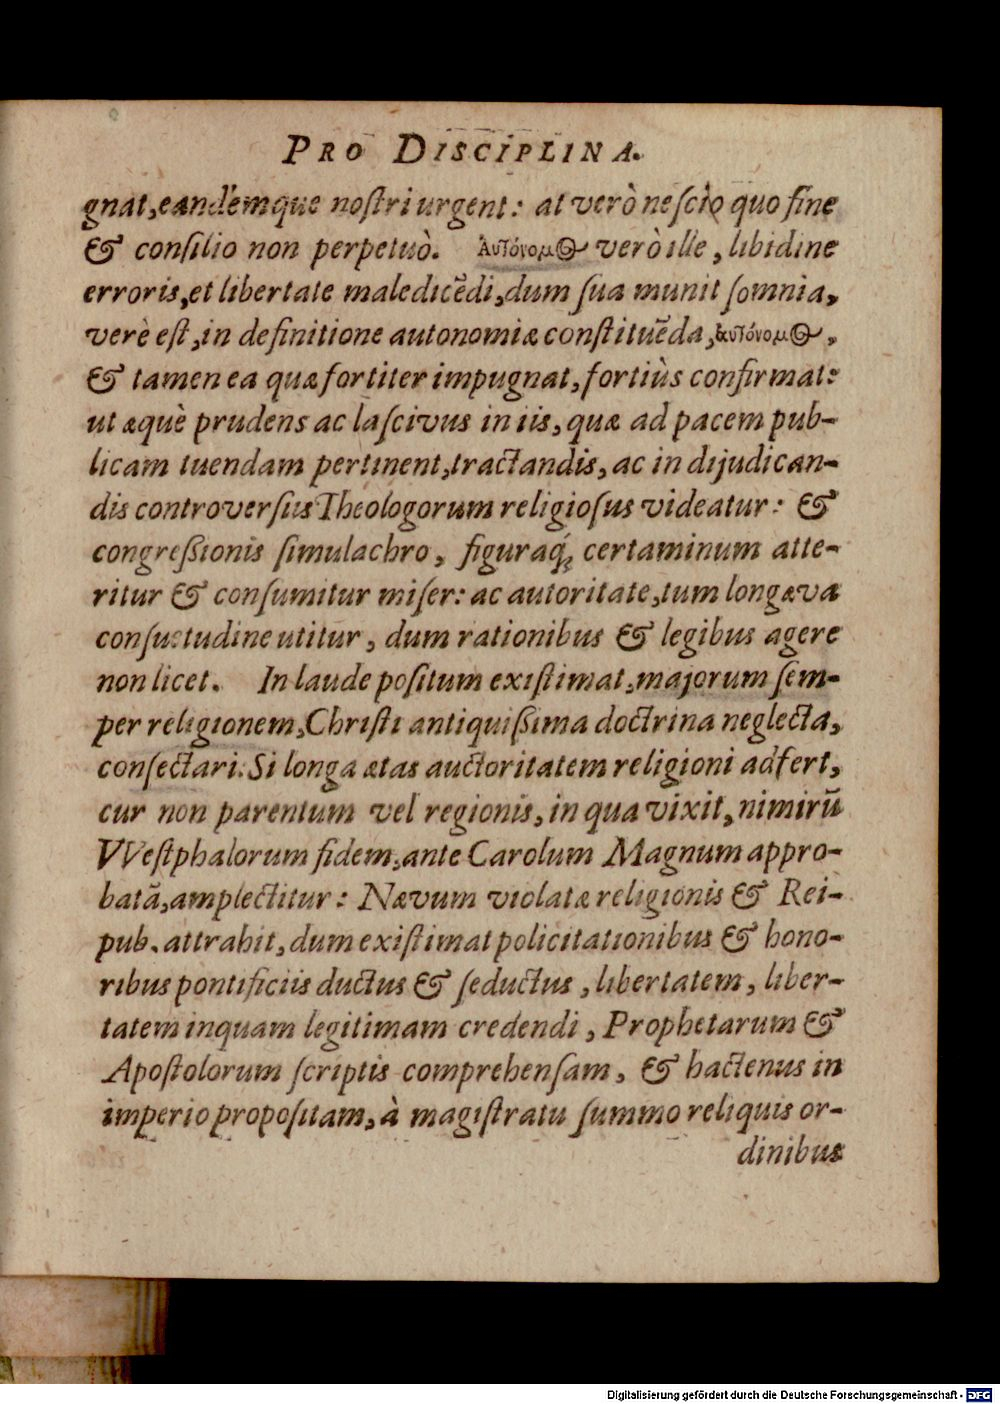 PRO DISCIPLINA.
gnat, eandemque noſtri urgent: at verò neſcio quo fine
& conſilio non perpetuò. Αὐτόνομος verò ille, libidine
erroris, et libertate maledicēdi, dum ſua munit ſomnia,
verè eſt, in definitione autonomiæ conſtituēda, αὐτόνομος,
& tamen ea quæ fortiter impugnat, fortiùs confirmat:
ut æquè prudens ac laſcivus in iis, quæ ad pacem pub-
licam tuendam pertinent, tractandis, ac in dijudican-
dis controverſiis Theologorum religioſus videatur: &
congreßionis ſimulachro, figuraq́; certaminum atte-
ritur & conſumitur miſer: ac autoritate, tum longæva
conſuetudine utitur, dum rationibus & legibus agere
non licet. In laude poſitum exiſtimat, majorum ſem-
per religionem, Chriſti antiquißima doctrina neglecta,
conſectari. Si longa ætas auctoritatem religioni adfert,
cur non parentum vel regionis, in qua vixit, nimirū
VVeſtphalorum fidem, ante Carolum Magnum appro-
batā, amplectitur: Nævum violatæ religionis & Rei-
pub. attrahit, dum exiſtimat policitationibus & hono-
ribus pontificiis ductus & ſeductus, libertatem, liber-
tatem inquam legitimam credendi, Prophetarum &
Apoſtolorum ſcriptis comprehenſam, & hactenus in
imperio propoſitam, à magiſtratu ſummo reliquis or-
dinibus
Digitalisierung gefördert durch die Deutsche Forschungsgemeinschaft - DFG